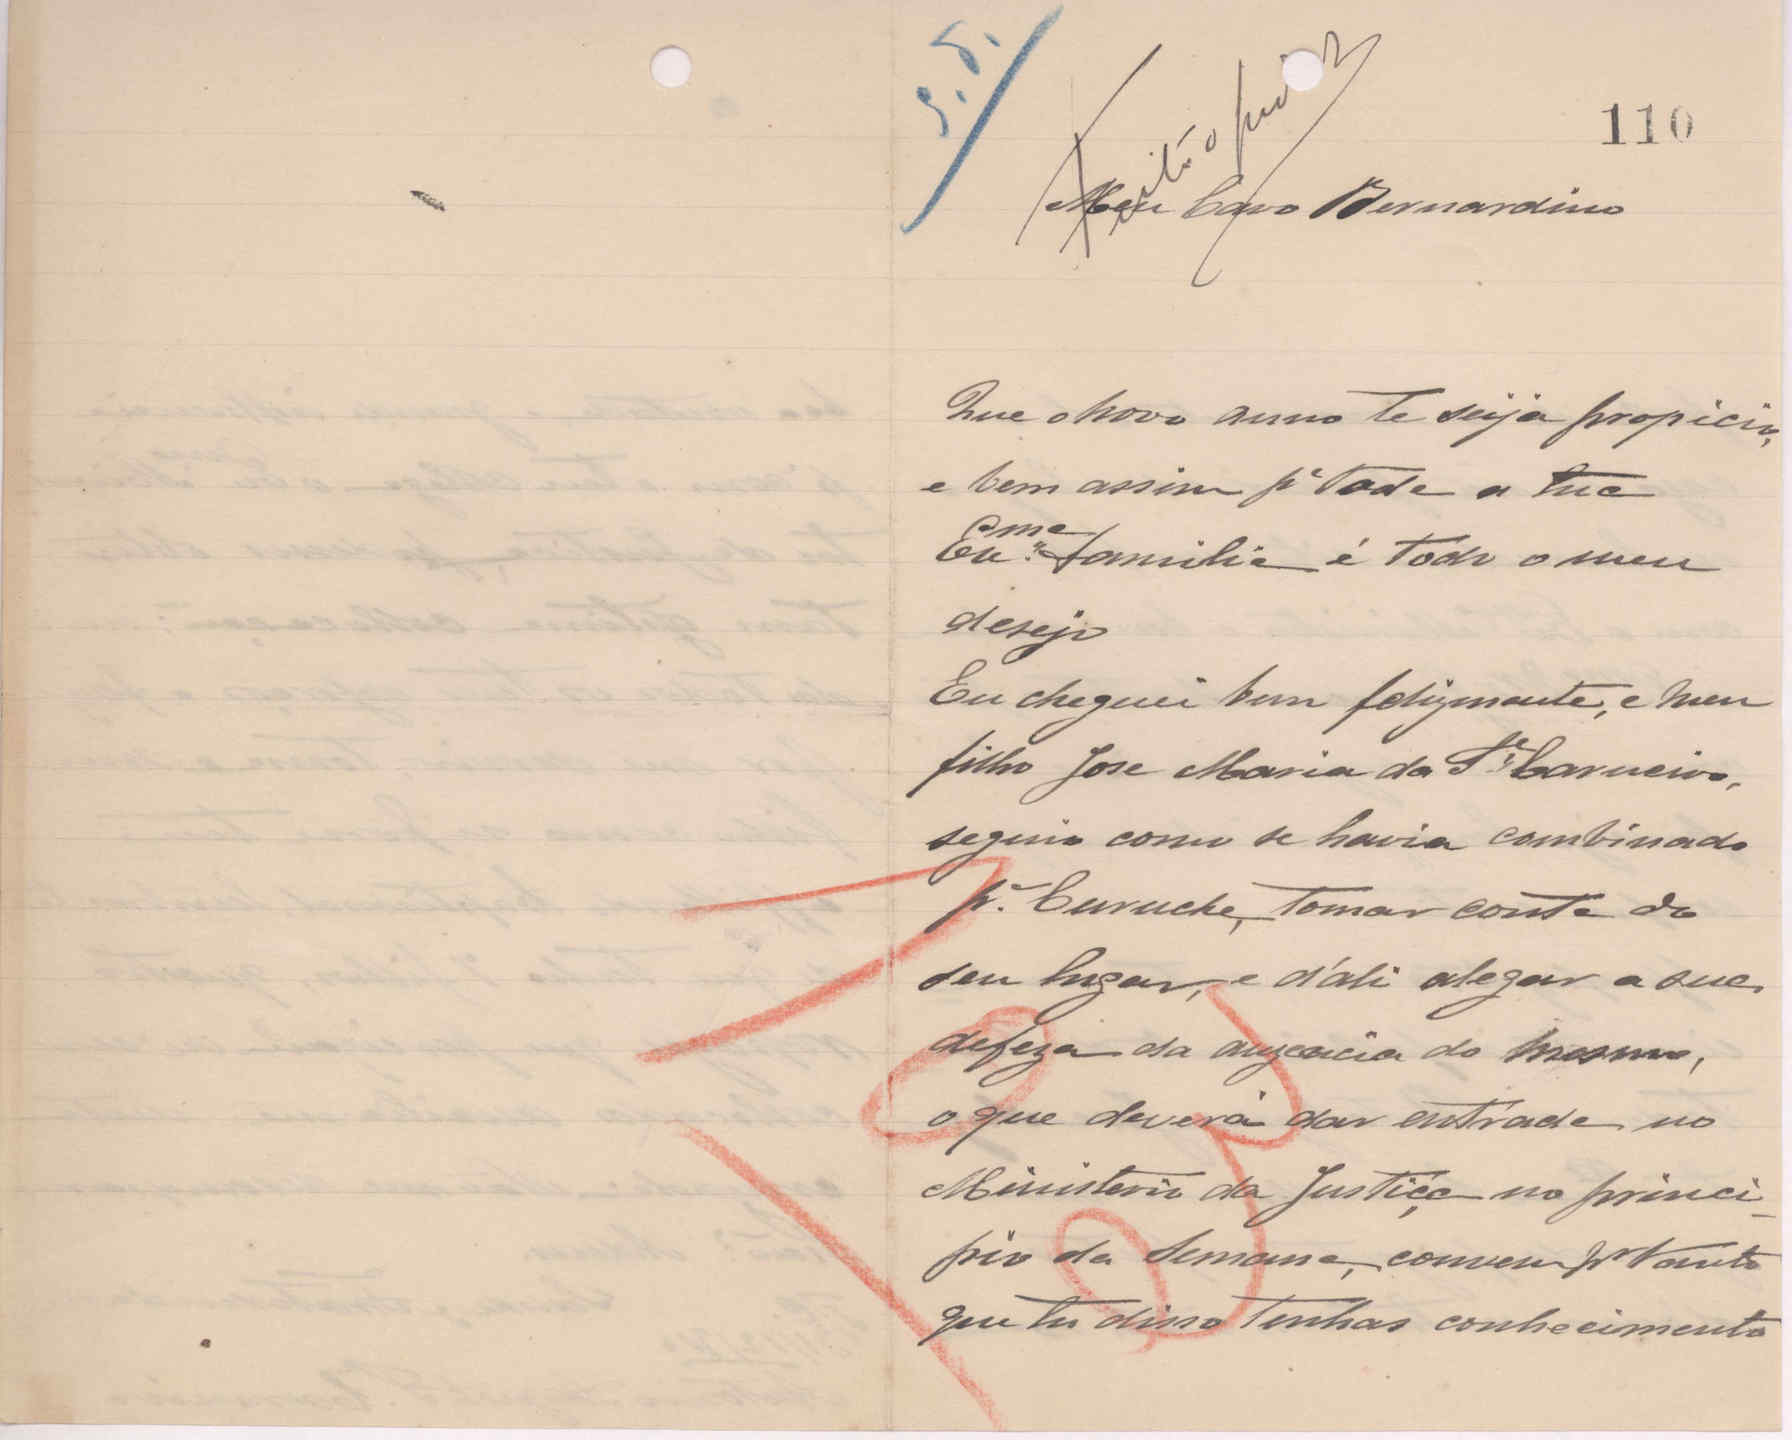 110
Meu Caro Bernardino
Que o novo anno te seija propicio,
e bem assim pª toda a tua
Exma familia é todo o meu
desejo
Eu cheguei bem felizmente, e meu
filho Jose Maria da Sª Carneiro,
seguio como se havia combinado
pª. Curuche, tomar conta do
seu lugar, e d'ali alegar a sua
defeza da auzencia do mesmo,
o que deverá dar entrada no
Ministerio da Justiça no princi-
pio da semana, convem pr tanto
que tu disso tenhas conhecimento